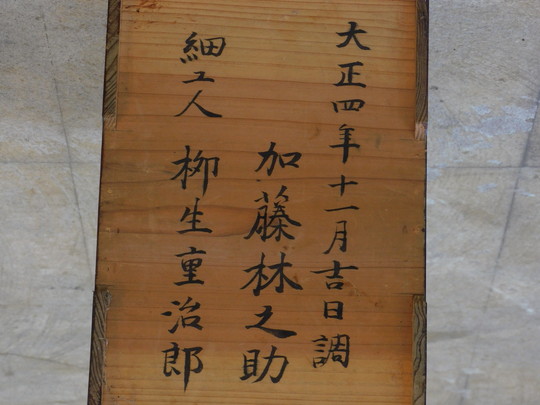 大正四年十一月吉日調
加藤林之助
細工人 柳生重治郎